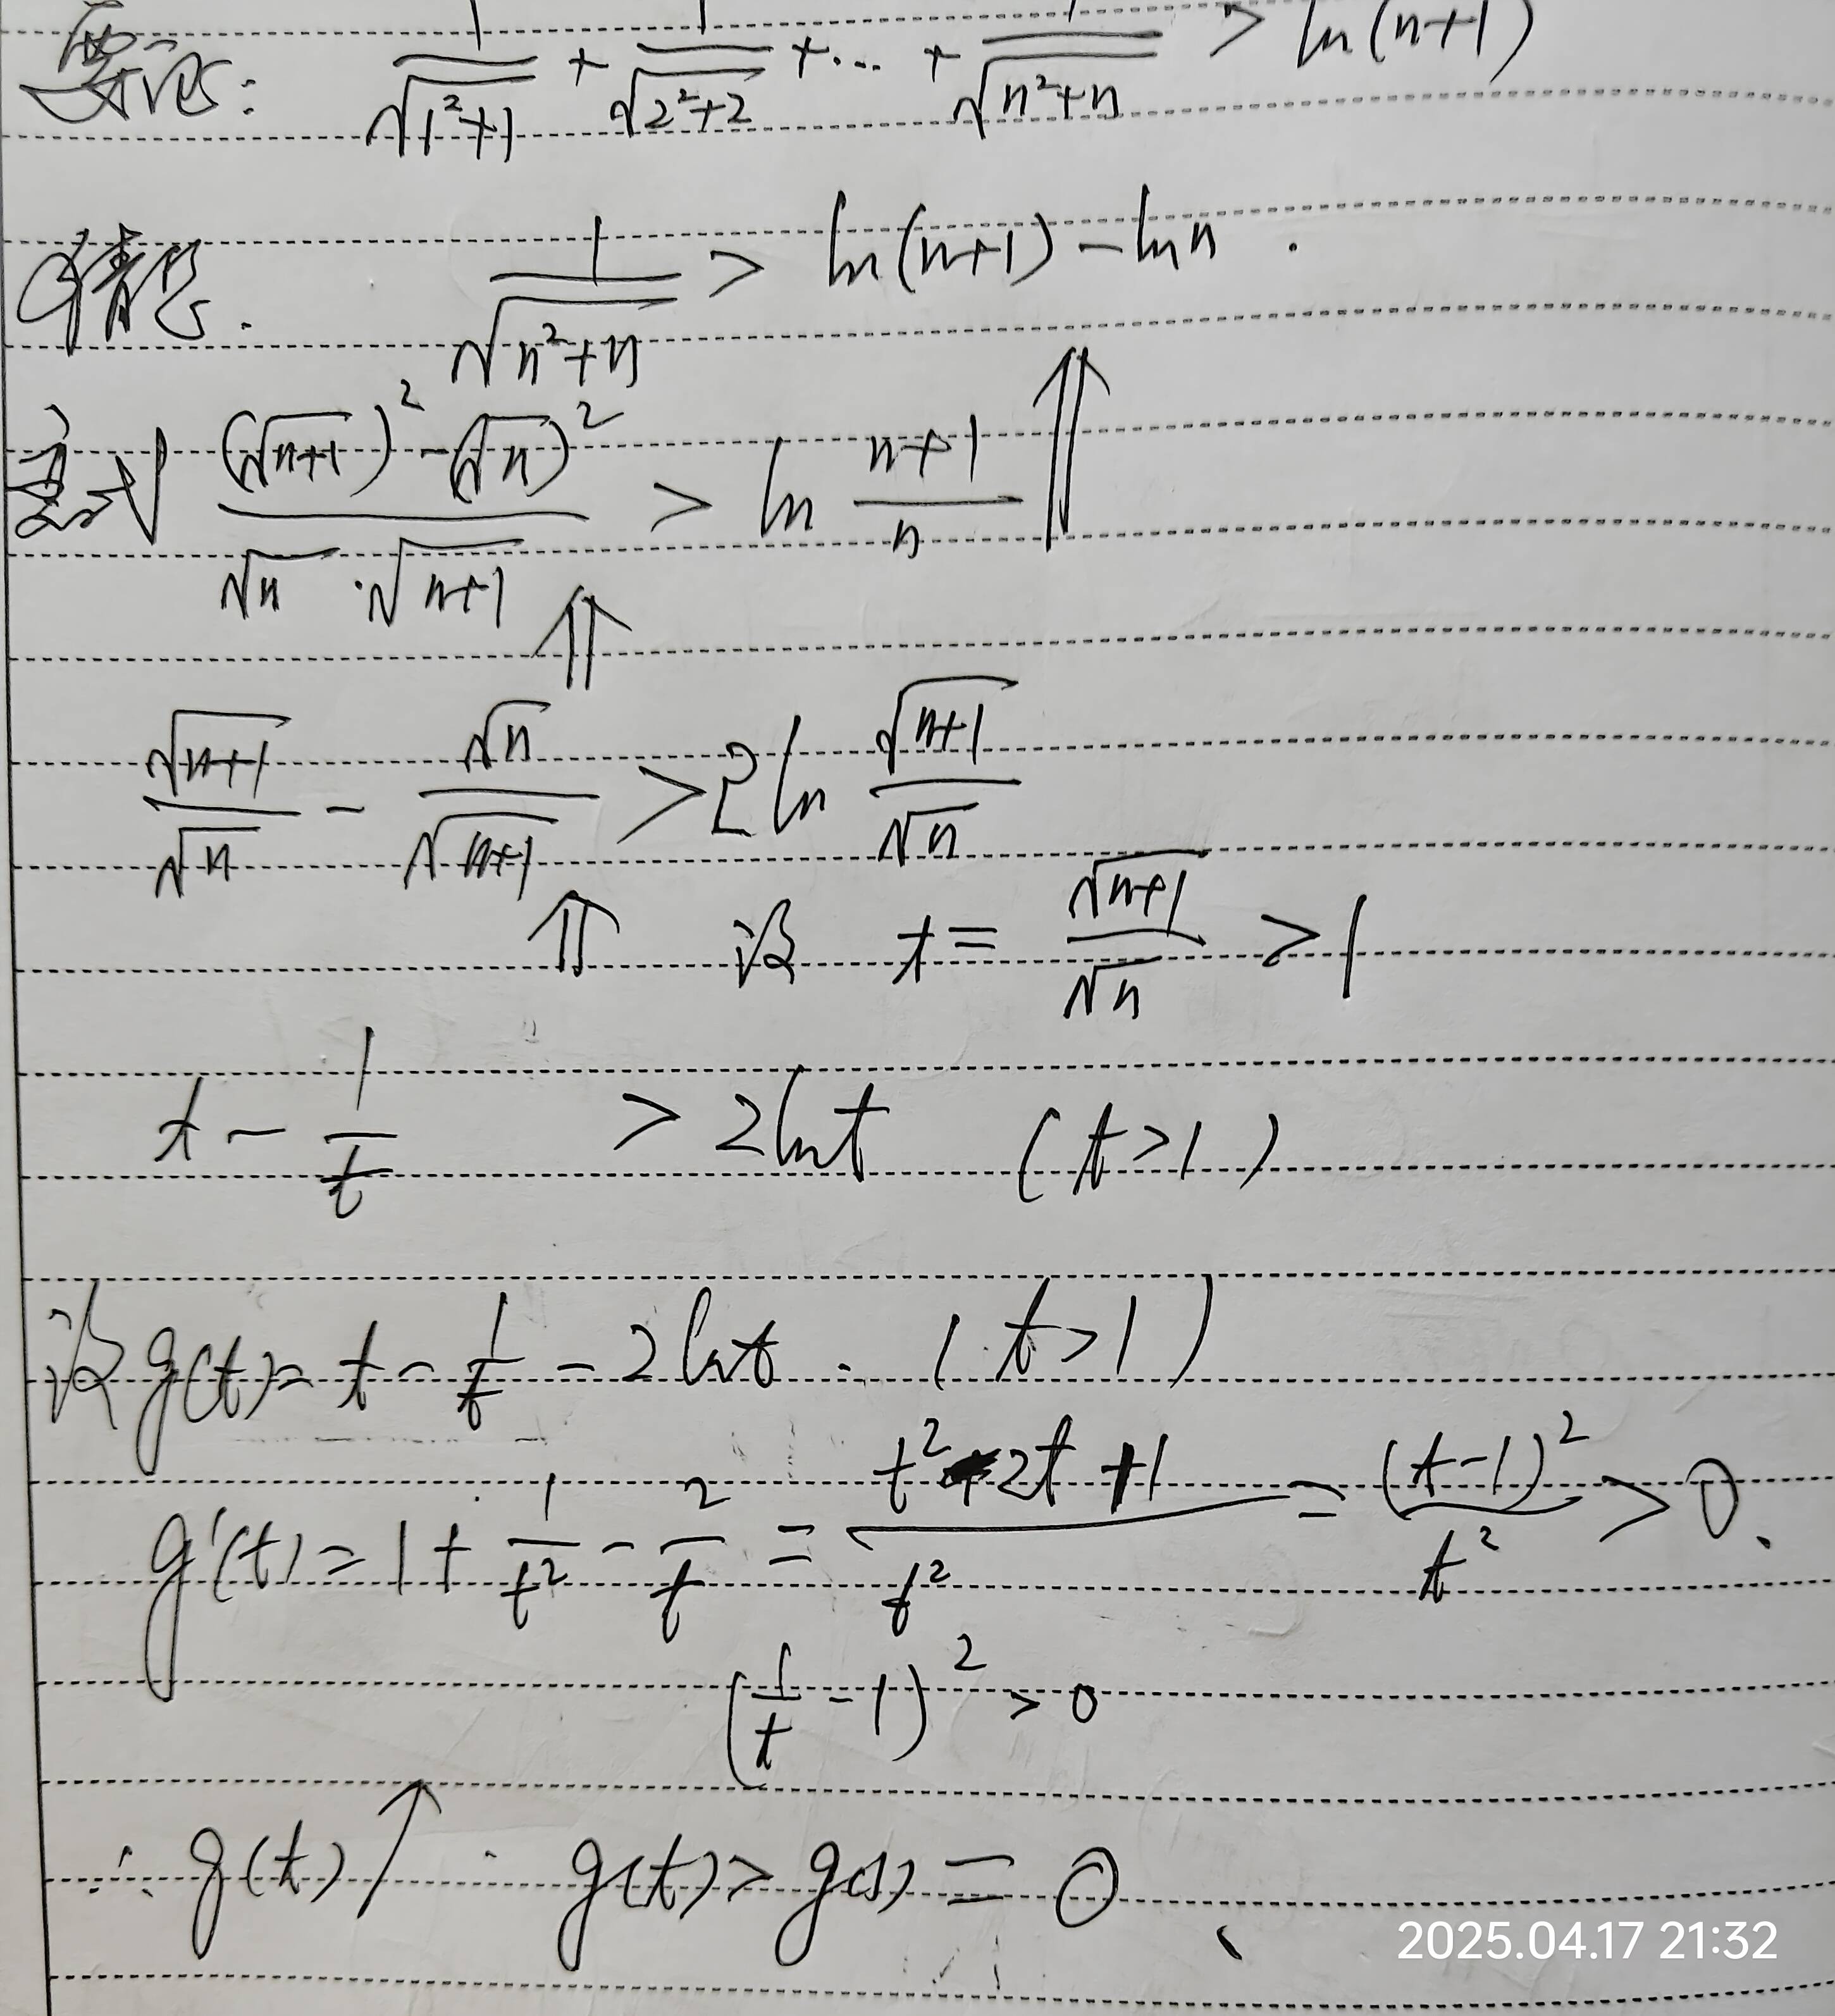 要证: 1/√(1²+1) + 1/√(2²+2) + … + 1/√(n²+n) > ln(n+1)
猜想. 1/√(n²+n) > ln(n+1) - ln n .
变式 ((√(n+1))² - (√n)²)/(√n · √(n+1)) > ln (n+1)/n ⇑
⇑
√(n+1)/√n - √n/√(n+1) > 2ln √(n+1)/√n
⇑ 设 t = √(n+1)/√n > 1
t - 1/t > 2lnt (t>1)
设 g(t) = t - 1/t - 2lnt . (t>1)
g'(t) = 1 + 1/t² - 2/t = (t²-2t+1)/t² = (t-1)²/t² > 0.
(1/t - 1)² > 0
∴ g(t)↗ g(t) > g(1) = 0 、
2025.04.17 21:32